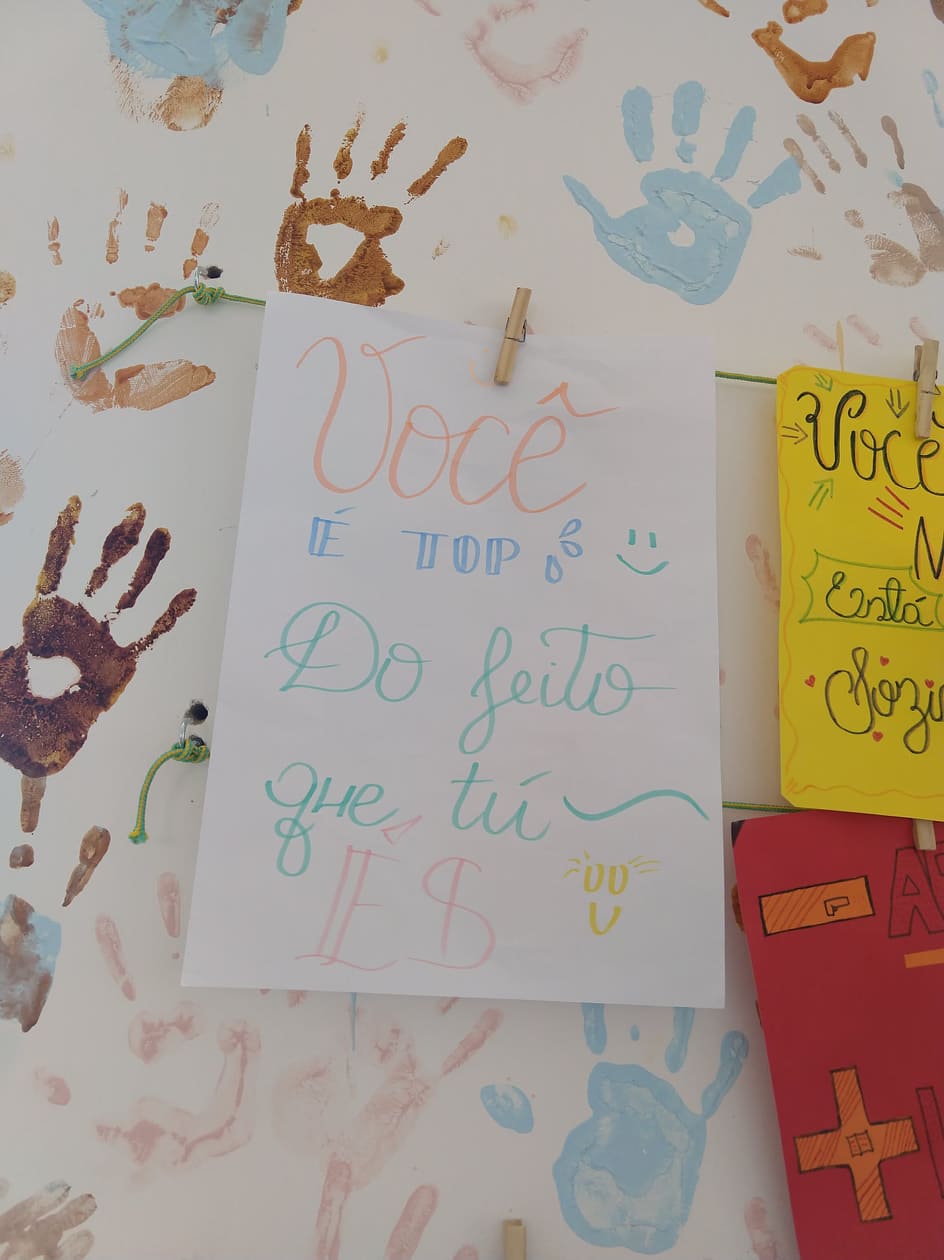 Você
É TOP
Do feito
que tú
ÉS
Você
Está